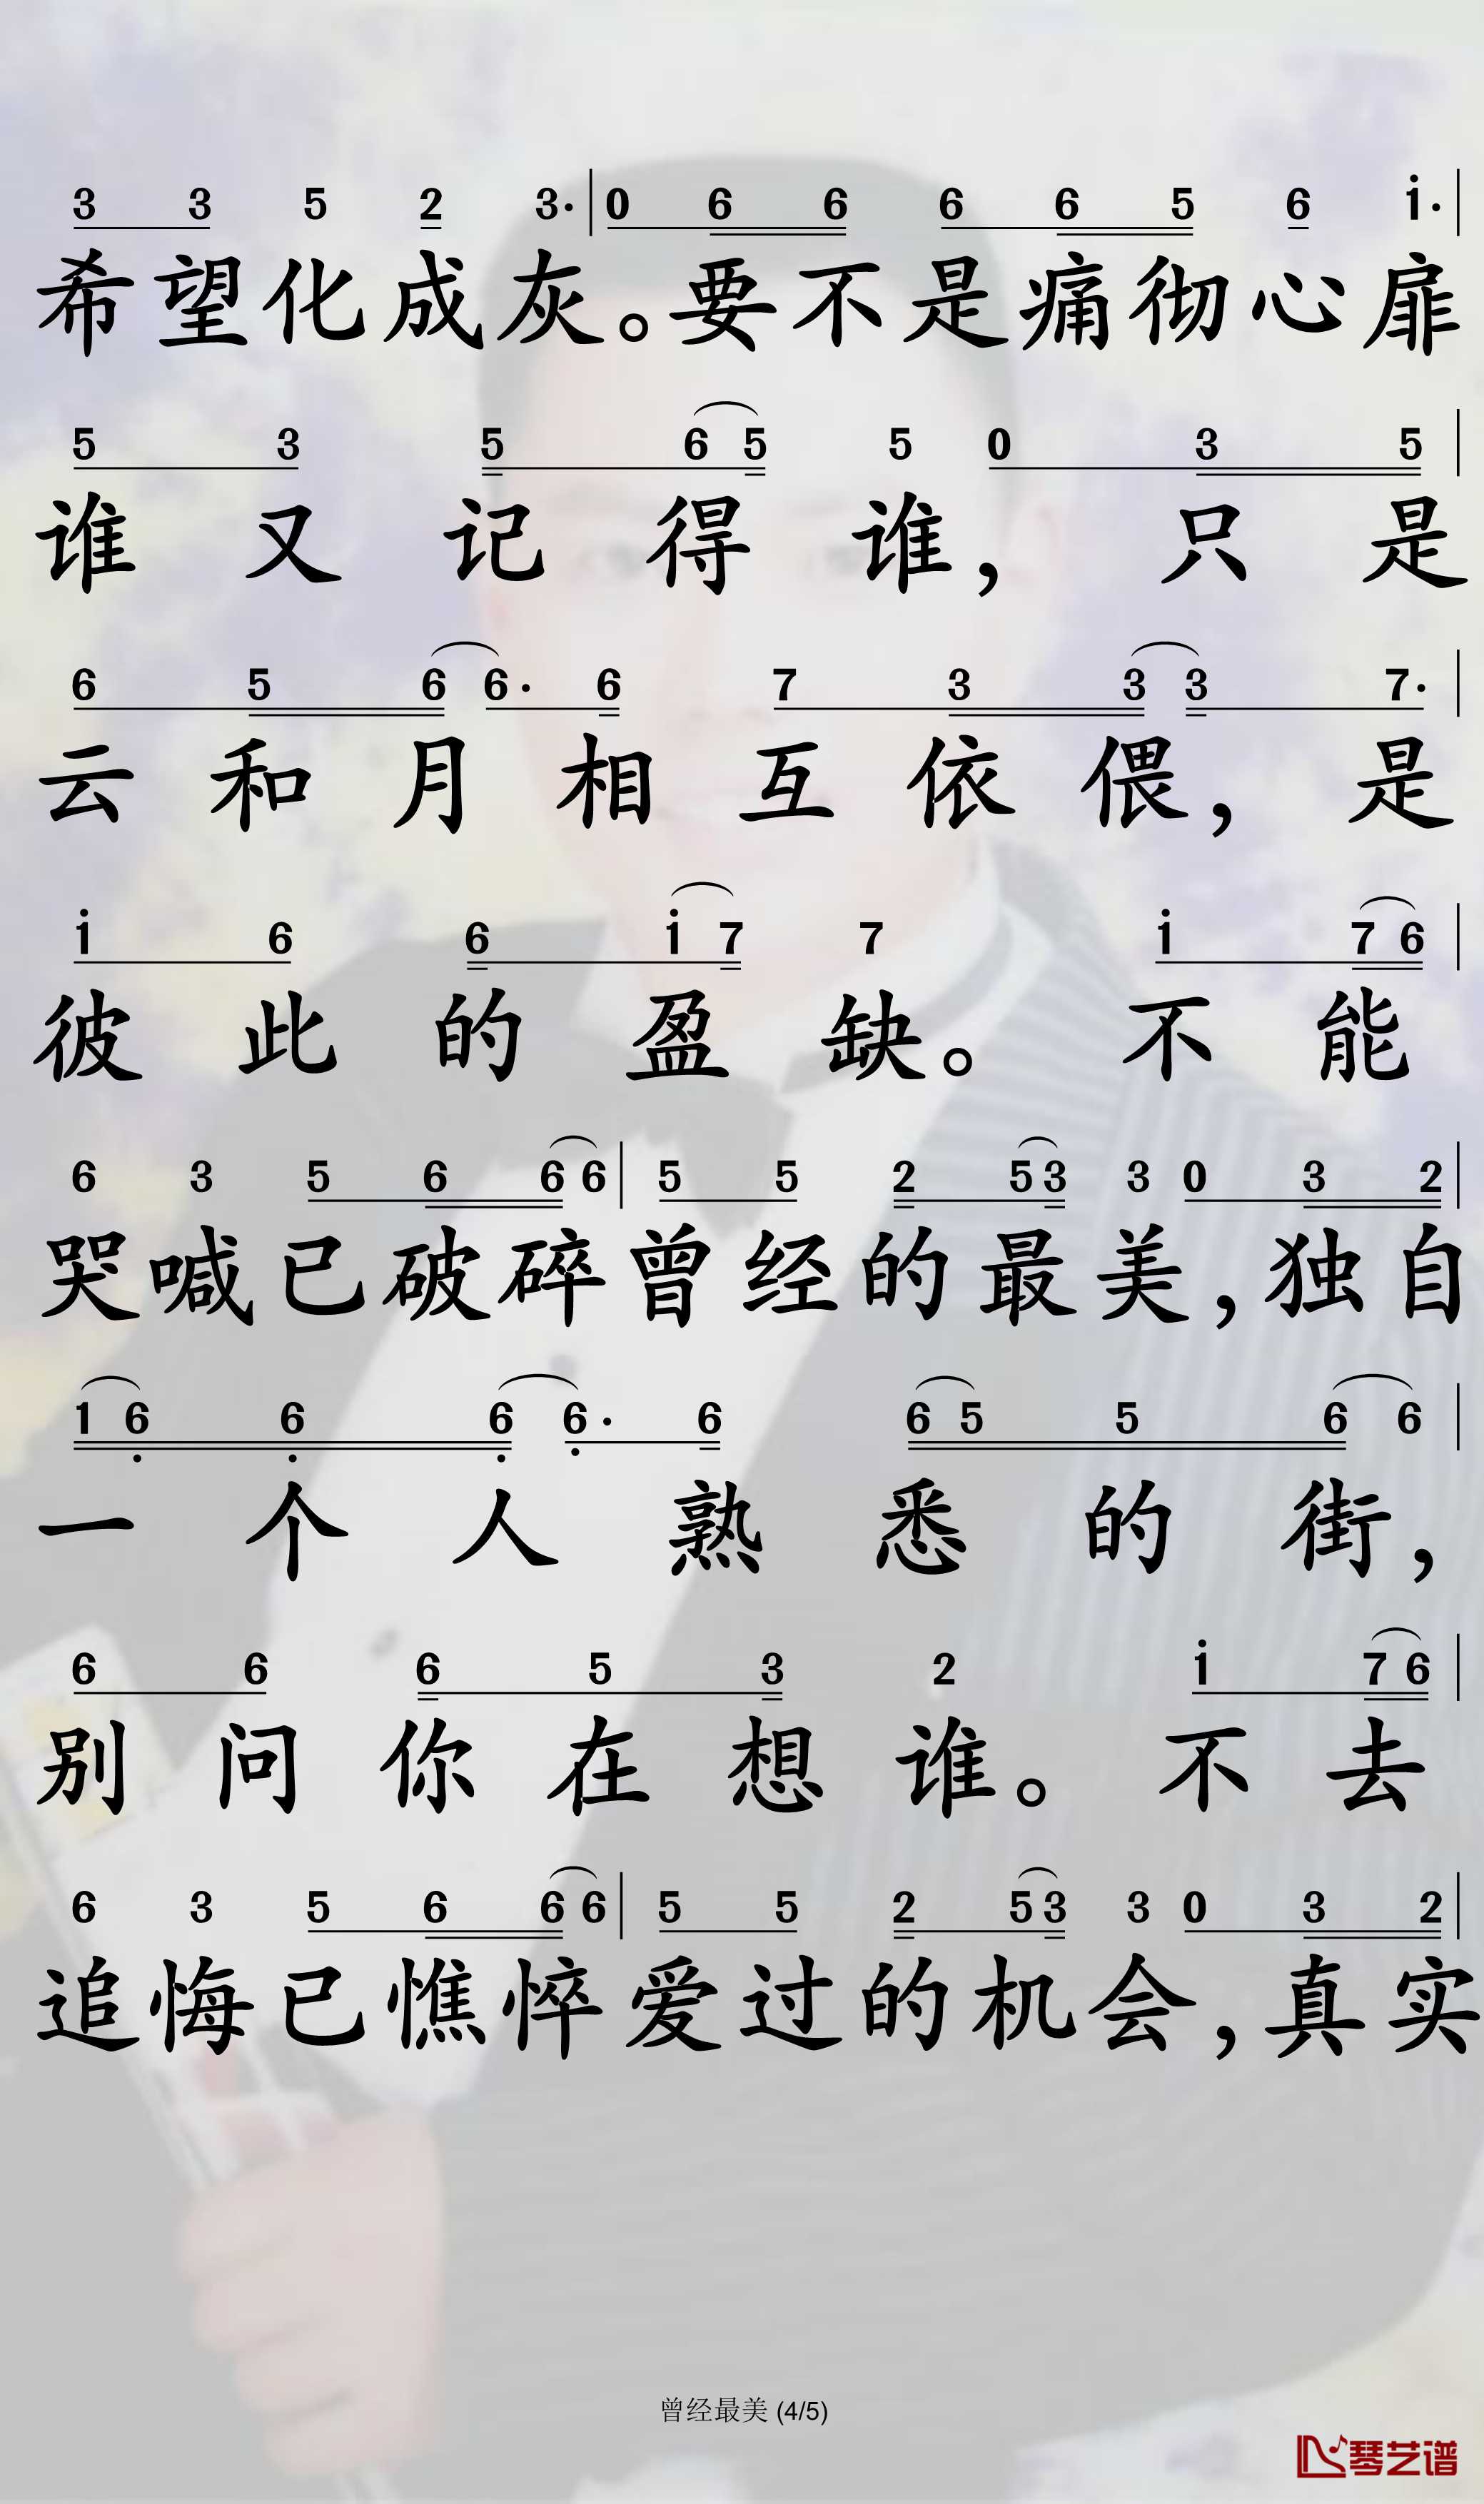 3 3 5 2 3· | 0 6 6 6 6 5 6 i· |
希望化成灰。要不是痛彻心扉
5 3 5 6 5 5 0 3 5 |
谁又记得谁，只是
6 5 6 6· 6 7 3 3 3 7· |
云和月相互依偎，是
i 6 6 i 7 7 i 7 6 |
彼此的盈缺。不能
6 3 5 6 6 6 | 5 5 2 5 3 3 0 3 2 |
哭喊已破碎曾经的最美，独自
1 6̣ 6̣ 6̣ 6̣· 6 6 5 5 6 6 |
一个人熟悉的街，
6 6 6 5 3 2 i 7 6 |
别问你在想谁。不去
6 3 5 6 6 6 | 5 5 2 5 3 3 0 3 2 |
追悔已憔悴爱过的机会，真实
曾经最美 (4/5)
琴艺谱